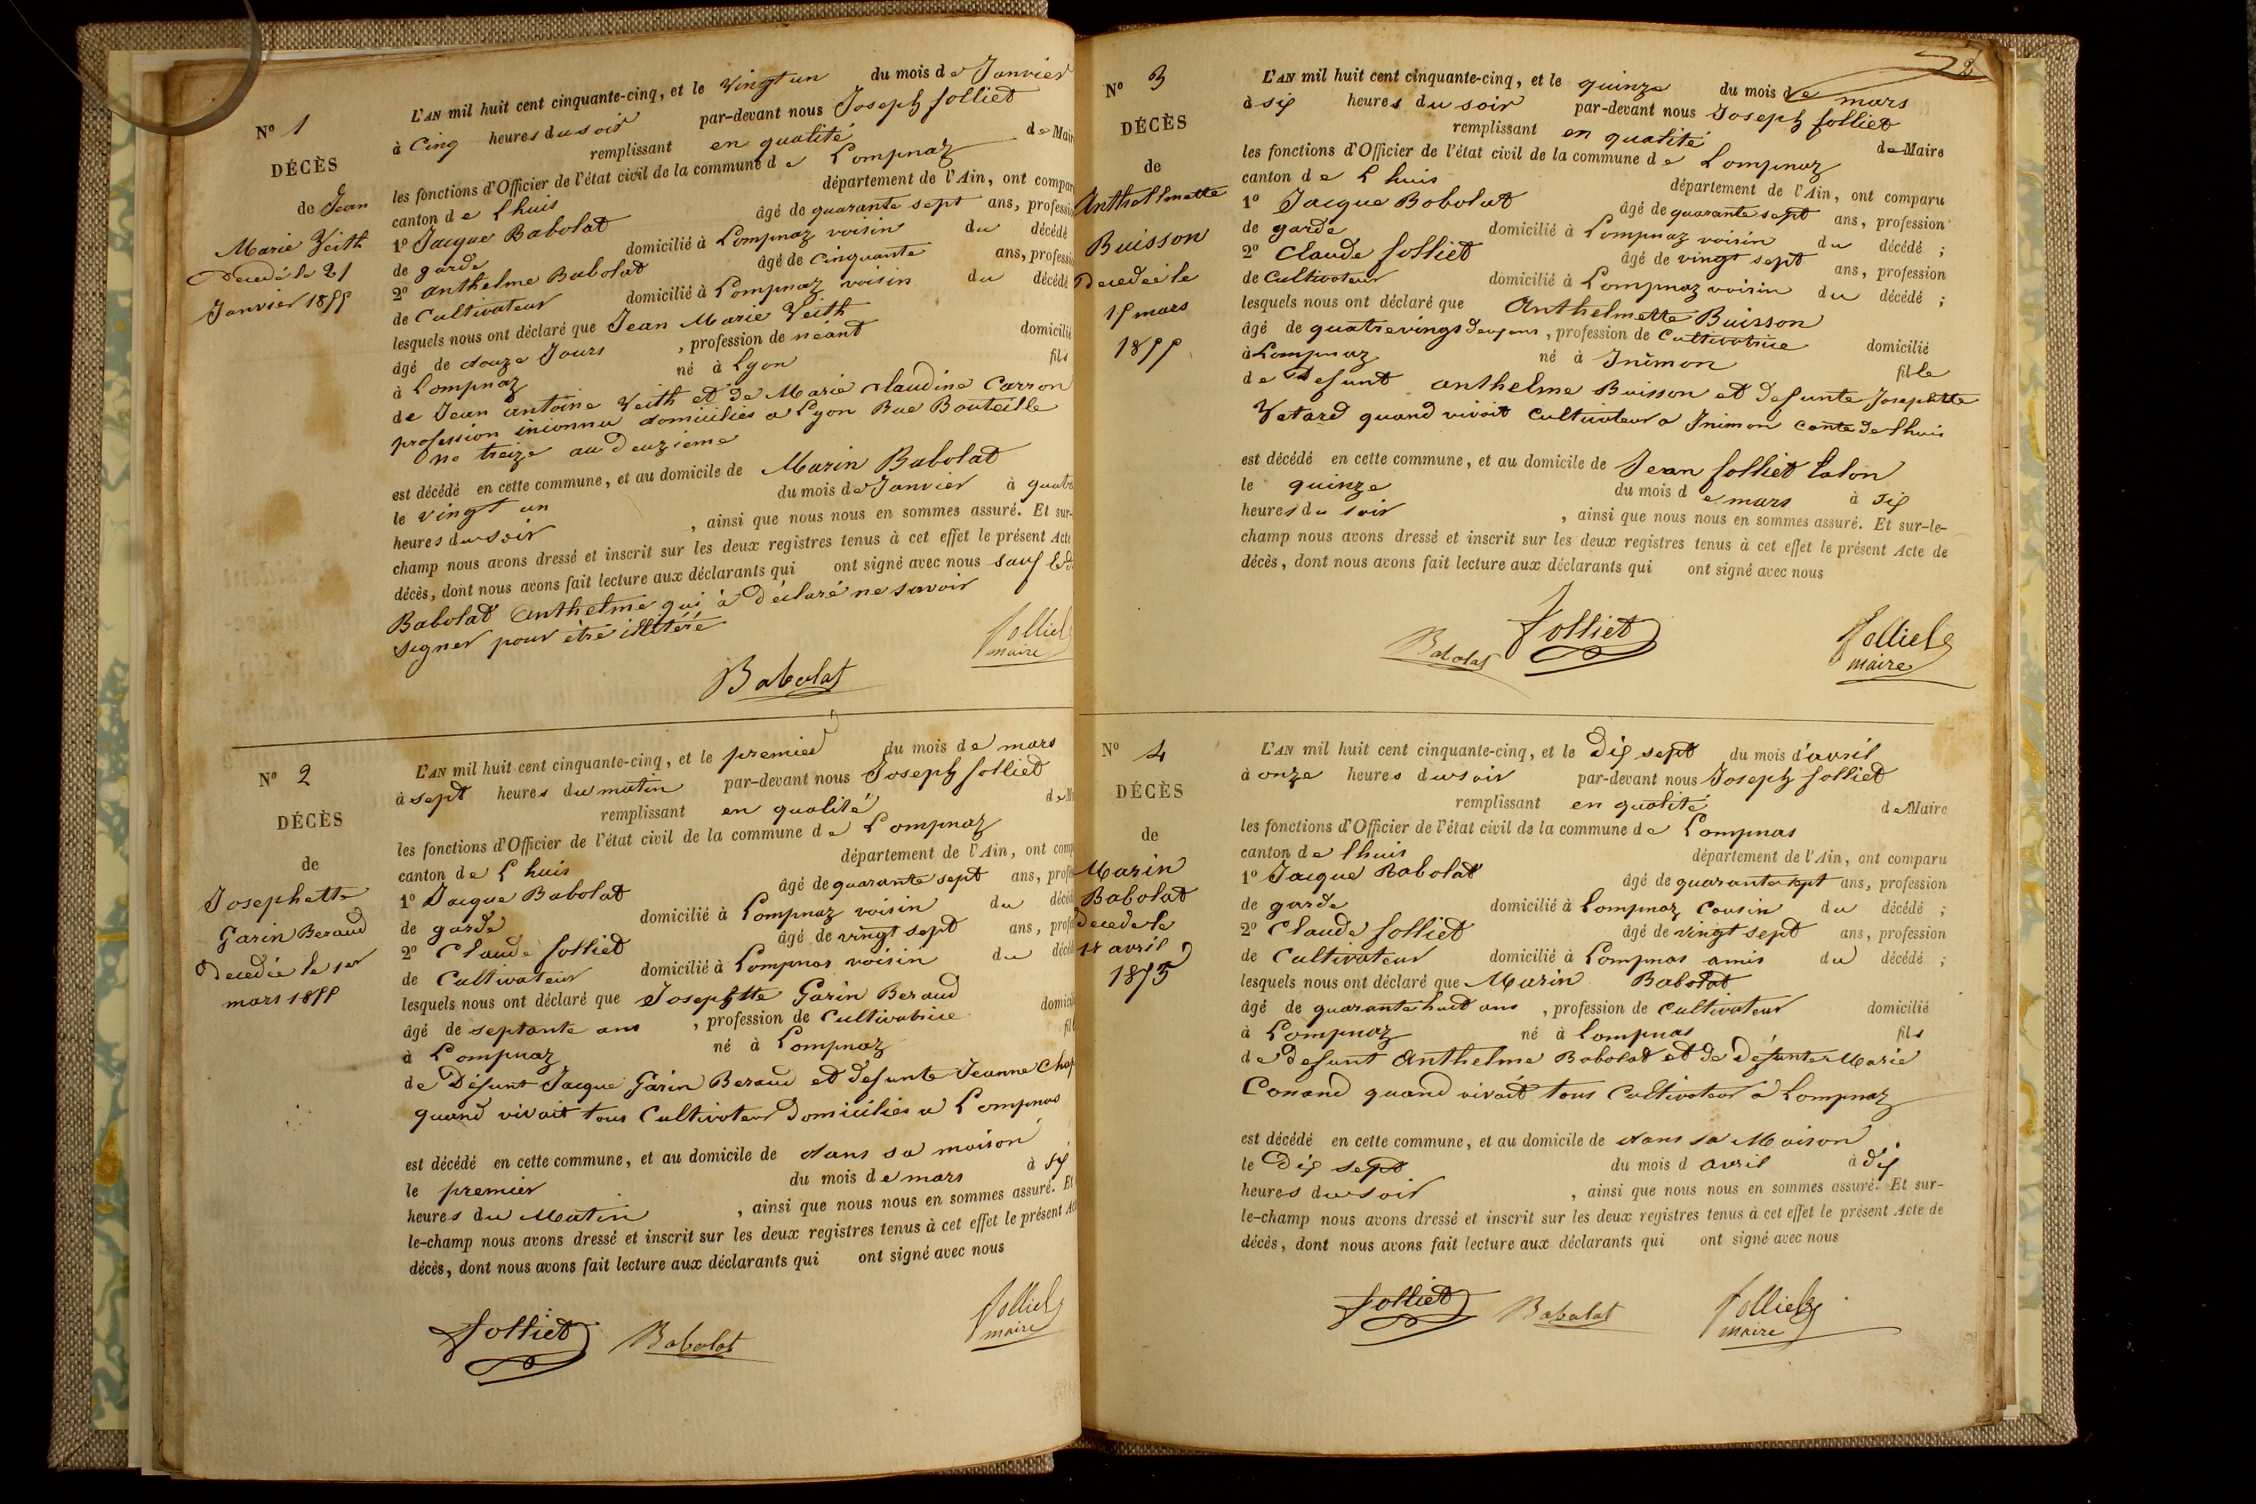 N° 1
DÉCÈS
de Jean
Marie Veith
Decedé le 21
Janvier 1855
L'AN mil huit cent cinquante-cinq, et le vingt un du mois de Janvier
à Cinq heures du soir par-devant nous Joseph folliet
remplissant en qualité de Mair
les fonctions d'Officier de l'état civil de la commune de Lompnaz
canton de Lhuis département de l'Ain, ont compar
1° Jacque Babolat âgé de quarante sept ans, professio
de garde domicilié à Lompnaz voisin du décédé
2° anthelme Babolat âgé de Cinquante ans, professio
de Cultivateur domicilié à Lompnaz voisin du décédé
lesquels nous ont déclaré que Jean Marie Veith
âgé de douze Jours , profession de neant domicilié
à Lompnaz né à Lyon fils
de Jean antoine Veith et de Marie Claudine Carron
profession inconnu domiciliés a Lyon Rue Bouteille
no treize au deuzieme
est décédé en cette commune, et au domicile de Marin Babolat
le vingt un du mois de Janvier à quatr
heures du soir , ainsi que nous nous en sommes assuré. Et sur-
champ nous avons dressé et inscrit sur les deux registres tenus à cet effet le présent Acte
décès, dont nous avons fait lecture aux déclarants qui ont signé avec nous sauf le
Babolat Anthelme qui à déclaré ne savoir
signer pour être illitéré
folliet
maire
Babolat
N° 2
DÉCÈS
de
Josephette
Garin Beraud
Decedée le 1er
mars 1855
L'AN mil huit cent cinquante-cinq, et le premier du mois de mars
à sept heures du matin par-devant nous Joseph folliet
remplissant en qualité de M
les fonctions d'Officier de l'état civil de la commune de Lompnaz
canton de Lhuis département de l'Ain, ont comp
1° Jacque Babolat âgé de quarante sept ans, profe
de garde domicilié à Lompnaz voisin du décéd
2° Claude folliet âgé de vingt sept ans, profe
de Cultivateur domicilié à Lompnas voisin du décéd
lesquels nous ont déclaré que Josephtte Garin Beraud
âgé de septante ans , profession de Cultivatrice domici
à Lompnaz né à Lompnaz fil
de Défunt Jacque Garin Beraud et defunte Jeanne Chap
quand vivait tous Cultivateur Domiciliés a Lompnas
est décédé en cette commune, et au domicile de dans sa maison
le premier du mois de mars à six
heures du Matin , ainsi que nous nous en sommes assuré. Et
le-champ nous avons dressé et inscrit sur les deux registres tenus à cet effet le présent Ac
décès, dont nous avons fait lecture aux déclarants qui ont signé avec nous
folliet
maire
folliet Babolat
2
N° 3
DÉCÈS
de
Anthelmette
Buisson
Decedée le
15 mars
1855
L'AN mil huit cent cinquante-cinq, et le quinze du mois de mars
à six heures du soir par-devant nous Joseph folliet
remplissant en qualité de Maire
les fonctions d'Officier de l'état civil de la commune de Lompnaz
canton de Lhuis département de l'Ain, ont comparu
1° Jacque Babolat âgé de quarante sept ans, profession
de garde domicilié à Lompnaz voisin du décédé ;
2° Claude folliet âgé de vingt sept ans, profession
de Cultivateur domicilié à Lompnaz voisin du décédé ;
lesquels nous ont déclaré que Anthelmette Buisson
âgé de quatrevings deux ans , profession de Cultivatrice domicilié
à Lompnaz né à Inimon fille
de Defunt anthelme Buisson et defunte Josephtte
Vetard quand vivoit Cultivateur a Inimon canto de lhuis
est décédé en cette commune, et au domicile de Jean folliet talon
le quinze du mois de mars à six
heures du soir , ainsi que nous nous en sommes assuré. Et sur-le-
champ nous avons dressé et inscrit sur les deux registres tenus à cet effet le présent Acte de
décès, dont nous avons fait lecture aux déclarants qui ont signé avec nous
Babolat folliet folliet
maire
N° 4
DÉCÈS
de
Marin
Babolat
decede le
17 avril
1855
L'AN mil huit cent cinquante-cinq, et le Dix sept du mois d'avril
à onze heures du soir par-devant nous Joseph folliet
remplissant en qualité de Maire
les fonctions d'Officier de l'état civil de la commune de Lompnas
canton de lhuis département de l'Ain, ont comparu
1° Jacque Babolat âgé de quarante sept ans, profession
de garde domicilié à Lompnaz Cousin du décédé ;
2° Claude folliet âgé de vingt sept ans, profession
de Cultivateur domicilié à Lompnas amis du décédé ;
lesquels nous ont déclaré que Marin Babolat
âgé de quarante huit ans , profession de Cultivateur domicilié
à Lompnaz né à Lompnas fils
de defunt Anthelme Babolat et de Défunte Marie
Conand quand vivait tous Cultivateur à Lompnaz
est décédé en cette commune, et au domicile de dans sa Maison
le Dix sept du mois d avril à dix
heures du soir , ainsi que nous nous en sommes assuré. Et sur-
le-champ nous avons dressé et inscrit sur les deux registres tenus à cet effet le présent Acte de
décès, dont nous avons fait lecture aux déclarants qui ont signé avec nous
folliet Babolat folliet
maire